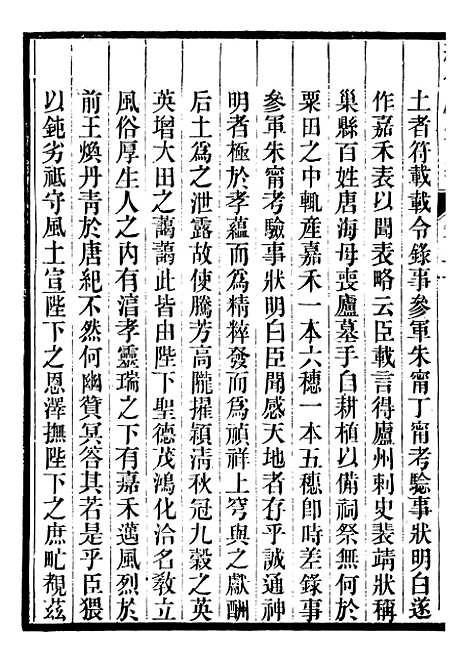 土者符載載令錄事參軍朱甯丁甯考驗事狀明白遂
作嘉禾表以聞表略云臣載言得廬州刺史裴靖狀稱
巢縣百姓唐海母喪廬墓手自耕植以備祠祭無何於
粟田之中輒產嘉禾一本六穗一本五穗卽時差錄事
參軍朱甯考驗事狀明白臣聞感天地者存乎誠通神
明者極於孝蘊而爲精粹發而爲禎祥上穹與之獻酬
后土爲之泄露故使騰芳高隴擢穎淸秋冠九穀之英
英增大田之藹藹此皆由陛下聖德茂鴻化洽名敎立
風俗厚生人之內有湻孝靈瑞之下有嘉禾邁風烈於
前王煥丹靑於唐紀不然何幽贊冥答其若是乎臣猥
以鈍劣祗守風土宣陛下之恩澤撫陛下之庶甿覩茲